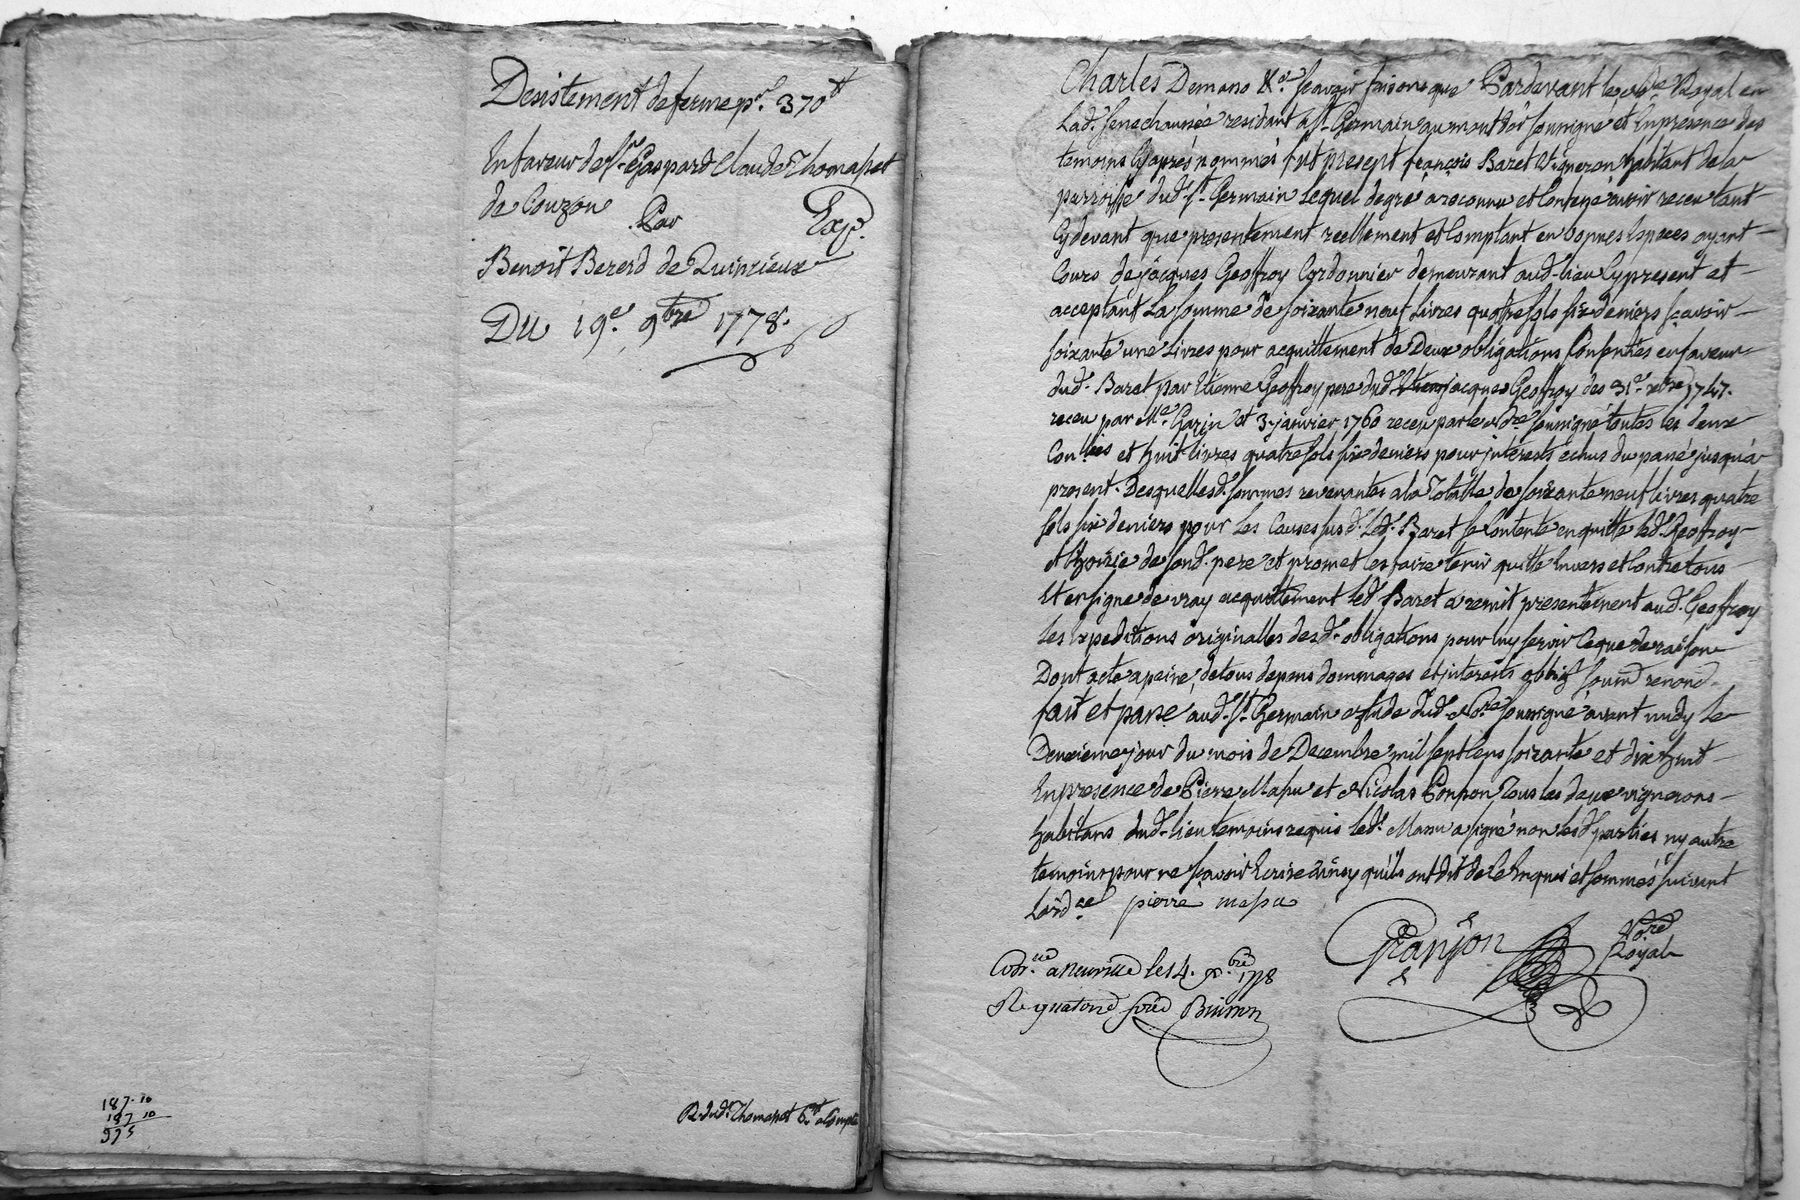 Desistement de ferme pr. 370 lt
En faveur de Sr. Gaspard Claude Thomaset
de Couzon
Par
Exp.
Benoit Bererd de Quinzieux
Du 19e. 9bre 1778.
187. 10
187 10
375
R. dud. Thomaset 6 lt a Compte
Charles Demono &a. Scavoir faisons que Pardevant le nore Royal en
Lad. senechaussée residant a St. Germain au mont d'or soussigné et En presence des
temoins Cy après nommés fut présent françois Baret Vigneron habitant de la
parroisse dud. St. Germain Lequel de gré a reconnu et Confessé avoir receu tant
Cy devant que presentement reellement et Comptant en bonnes Especes ayant
Cours de jacques Geoffroy Cordonnier demeurant aud. lieu Cy present et
acceptant La somme de soixante neuf Livres quatre sols six deniers sçavoir
soixante une Livres pour acquittement de Deux obligations Consenties en faveur
dud. Baret par Etienne Geoffroy pere dud. jacques Geoffroy des 31e. xbre 1747.
receu par Me. Garin et 3 janvier 1760 receu par le nore soussigné toutes les deux
Conllées et huit livres quatre sols six deniers pour interests échus du passé jusqu'à
present. Desquelles d. sommes revenantes a la Totalle de soixante neuf livres quatre
sols six deniers pour les Causes susd. Led. Baret se Contente en quitte led. Geoffroy
et hoirie de sond. pere et promet les faire tenir quitte Envers et Contre tous
Et en signe de vray acquittement led. Baret a remit presentement aud. Geoffroy
les Expeditions originalles desd. obligations pour luy servir Ce que de raison
Dont acte a peine, de tous depens dommages et interests oblig soumd renond
fait et passé aud. St. Germain etude dud. Nore soussigné avant midy le
Deuxieme jour du mois de Decembre mil sept Cens soixante et dix huit
En presence de Pierre Masu et Nicolas Ponpon Tous les deux vignerons
habitans dud. lieu temoins requis led. Masu a signé non lesd parties ny autre
temoin pour ne sçavoir Ecrire ainsy qu'ils ont dit de Ce Enquis et sommés suivant
Lordce pierre masu
Granjon Nore Royal
Conlé a Neuville le 14. xbre 1778
R. quatorze sols Buisson